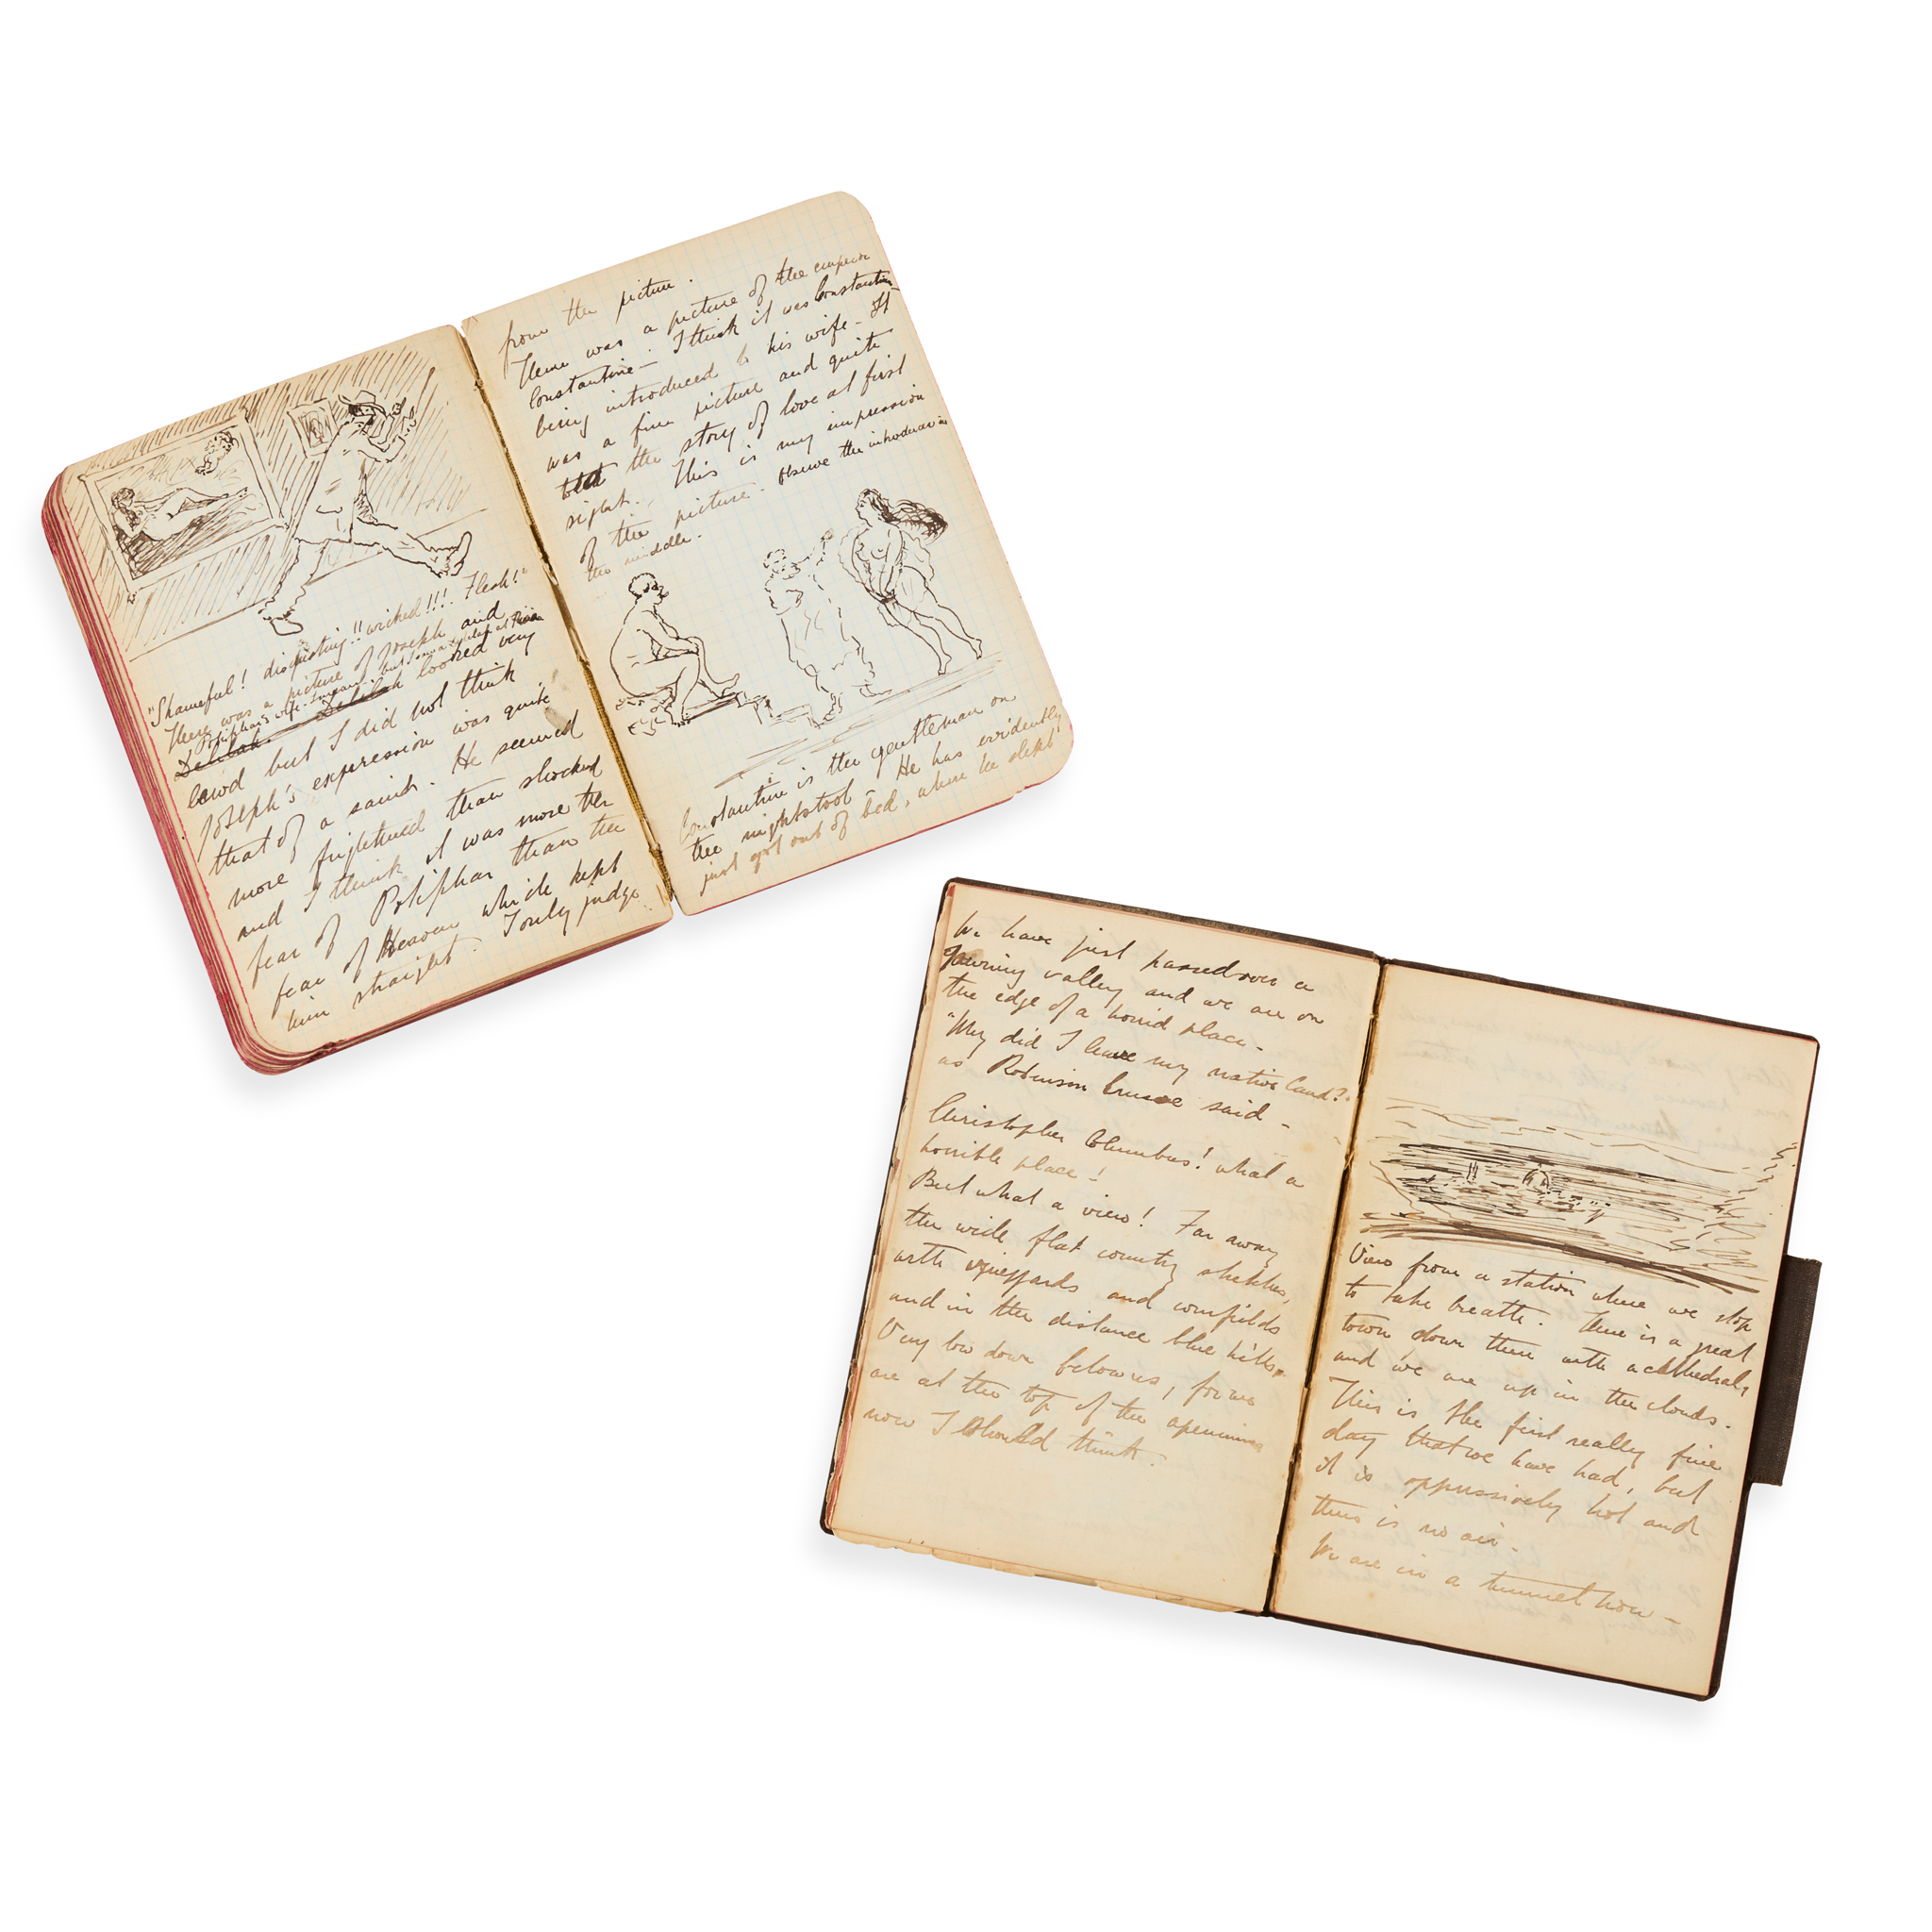 "Shameful! disgusting!! wicked!!! Flesh!"
There was a picture of Joseph and
Potiphar's wife - I mean - but
Delilah. Delilah looked very
lewd but I did not think
Joseph's expression was quite
that of a saint. He seemed
more frightened than shocked
and I think it was more the
fear of Potiphar than the
fear of Heaven which kept
him straight. I only judge
from the picture.
There was a picture of the emperor
Constantine - I think it was Constantine -
being introduced to his wife - It
was a fine picture and quite
told the story of love at first
sight. This is my impression
of the picture. Observe the introducer in
the middle.
Constantine is the gentleman on
the nightstool - He has evidently
just got out of bed, where he slept
We have just passed over a
yawning valley and we are on
the edge of a horrid place -
"Why did I leave my native land?"
as Robinson Crusoe said -
Christopher Columbus! what a
horrible place!
But what a view! Far away
the wide flat country stretches,
with vineyards and cornfields
and in the distance blue hills.
Very low down below us, for we
are at the top of the apennines
now I should think.
View from a station where we stop
to take breath. There is a great
town down there with a cathedral,
and we are up in the clouds.
This is the first really fine
day that we have had, but
it is oppressively hot and
there is no air.
We are in a tunnel now -